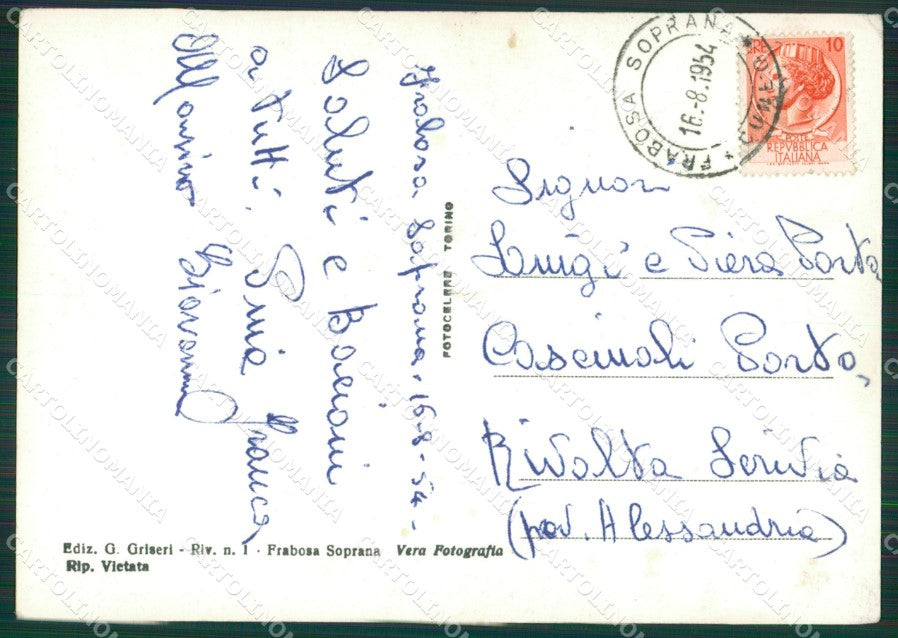 Frabosa Soprana, 16-8-54-
Saluti e Bacioni
a tutti. Franca,
Giovanni
FOTOCELERE TORINO
FRABOSA SOPRANA
CUNEO
16.8.1954
10
POSTE
REPVBBLICA
ITALIANA
Signor
Luigi e Piera Porta
Cascinali Porta,
Rivalta Scrivia
(prov. Alessandria)
Ediz. G. Griseri - Riv. n. 1 - Frabosa Soprana Vera Fotografia
Rip. Vietata
CARTOLINOMANIA